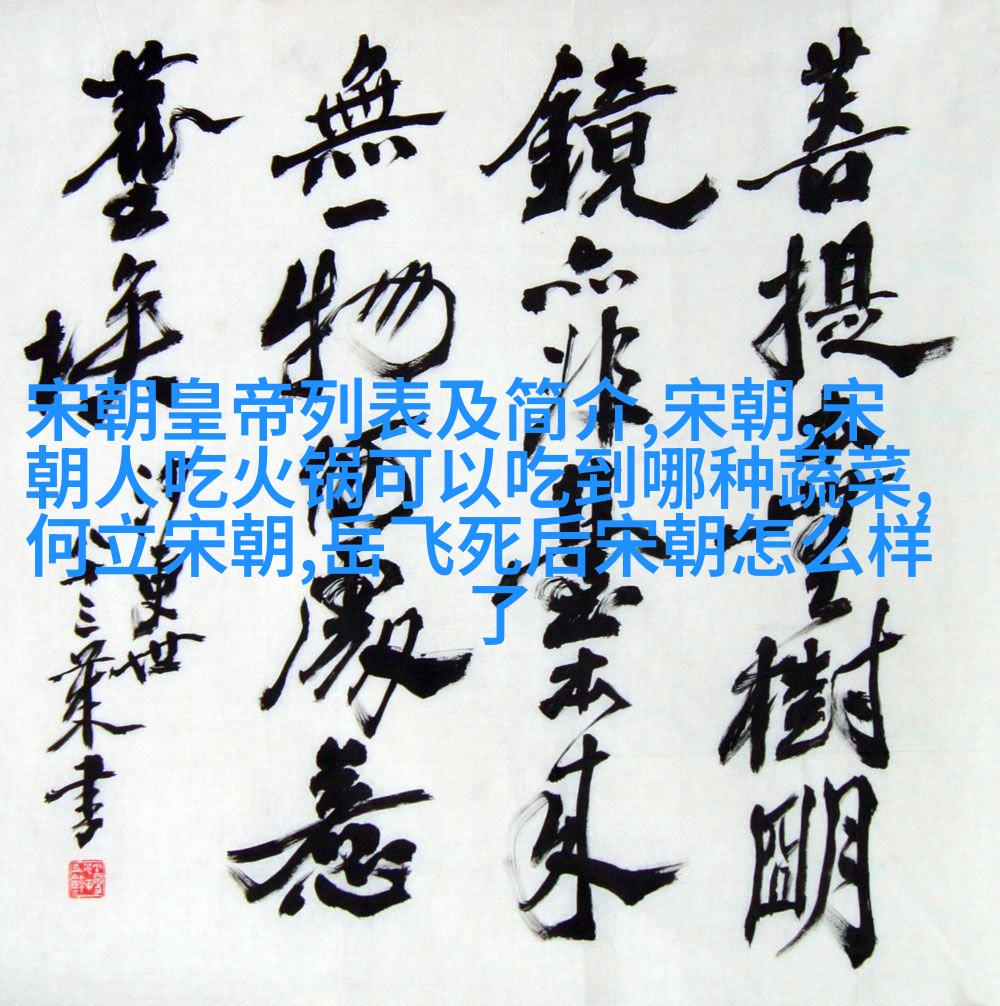 菩提樹朙
鏡亦非臺本來
無一物何處惹
塵埃
史世
十三葉書
宋朝皇帝列表及简介,宋朝,宋
朝人吃火锅可以吃到哪种蔬菜,
何立宋朝,岳飞死后宋朝怎么样
了